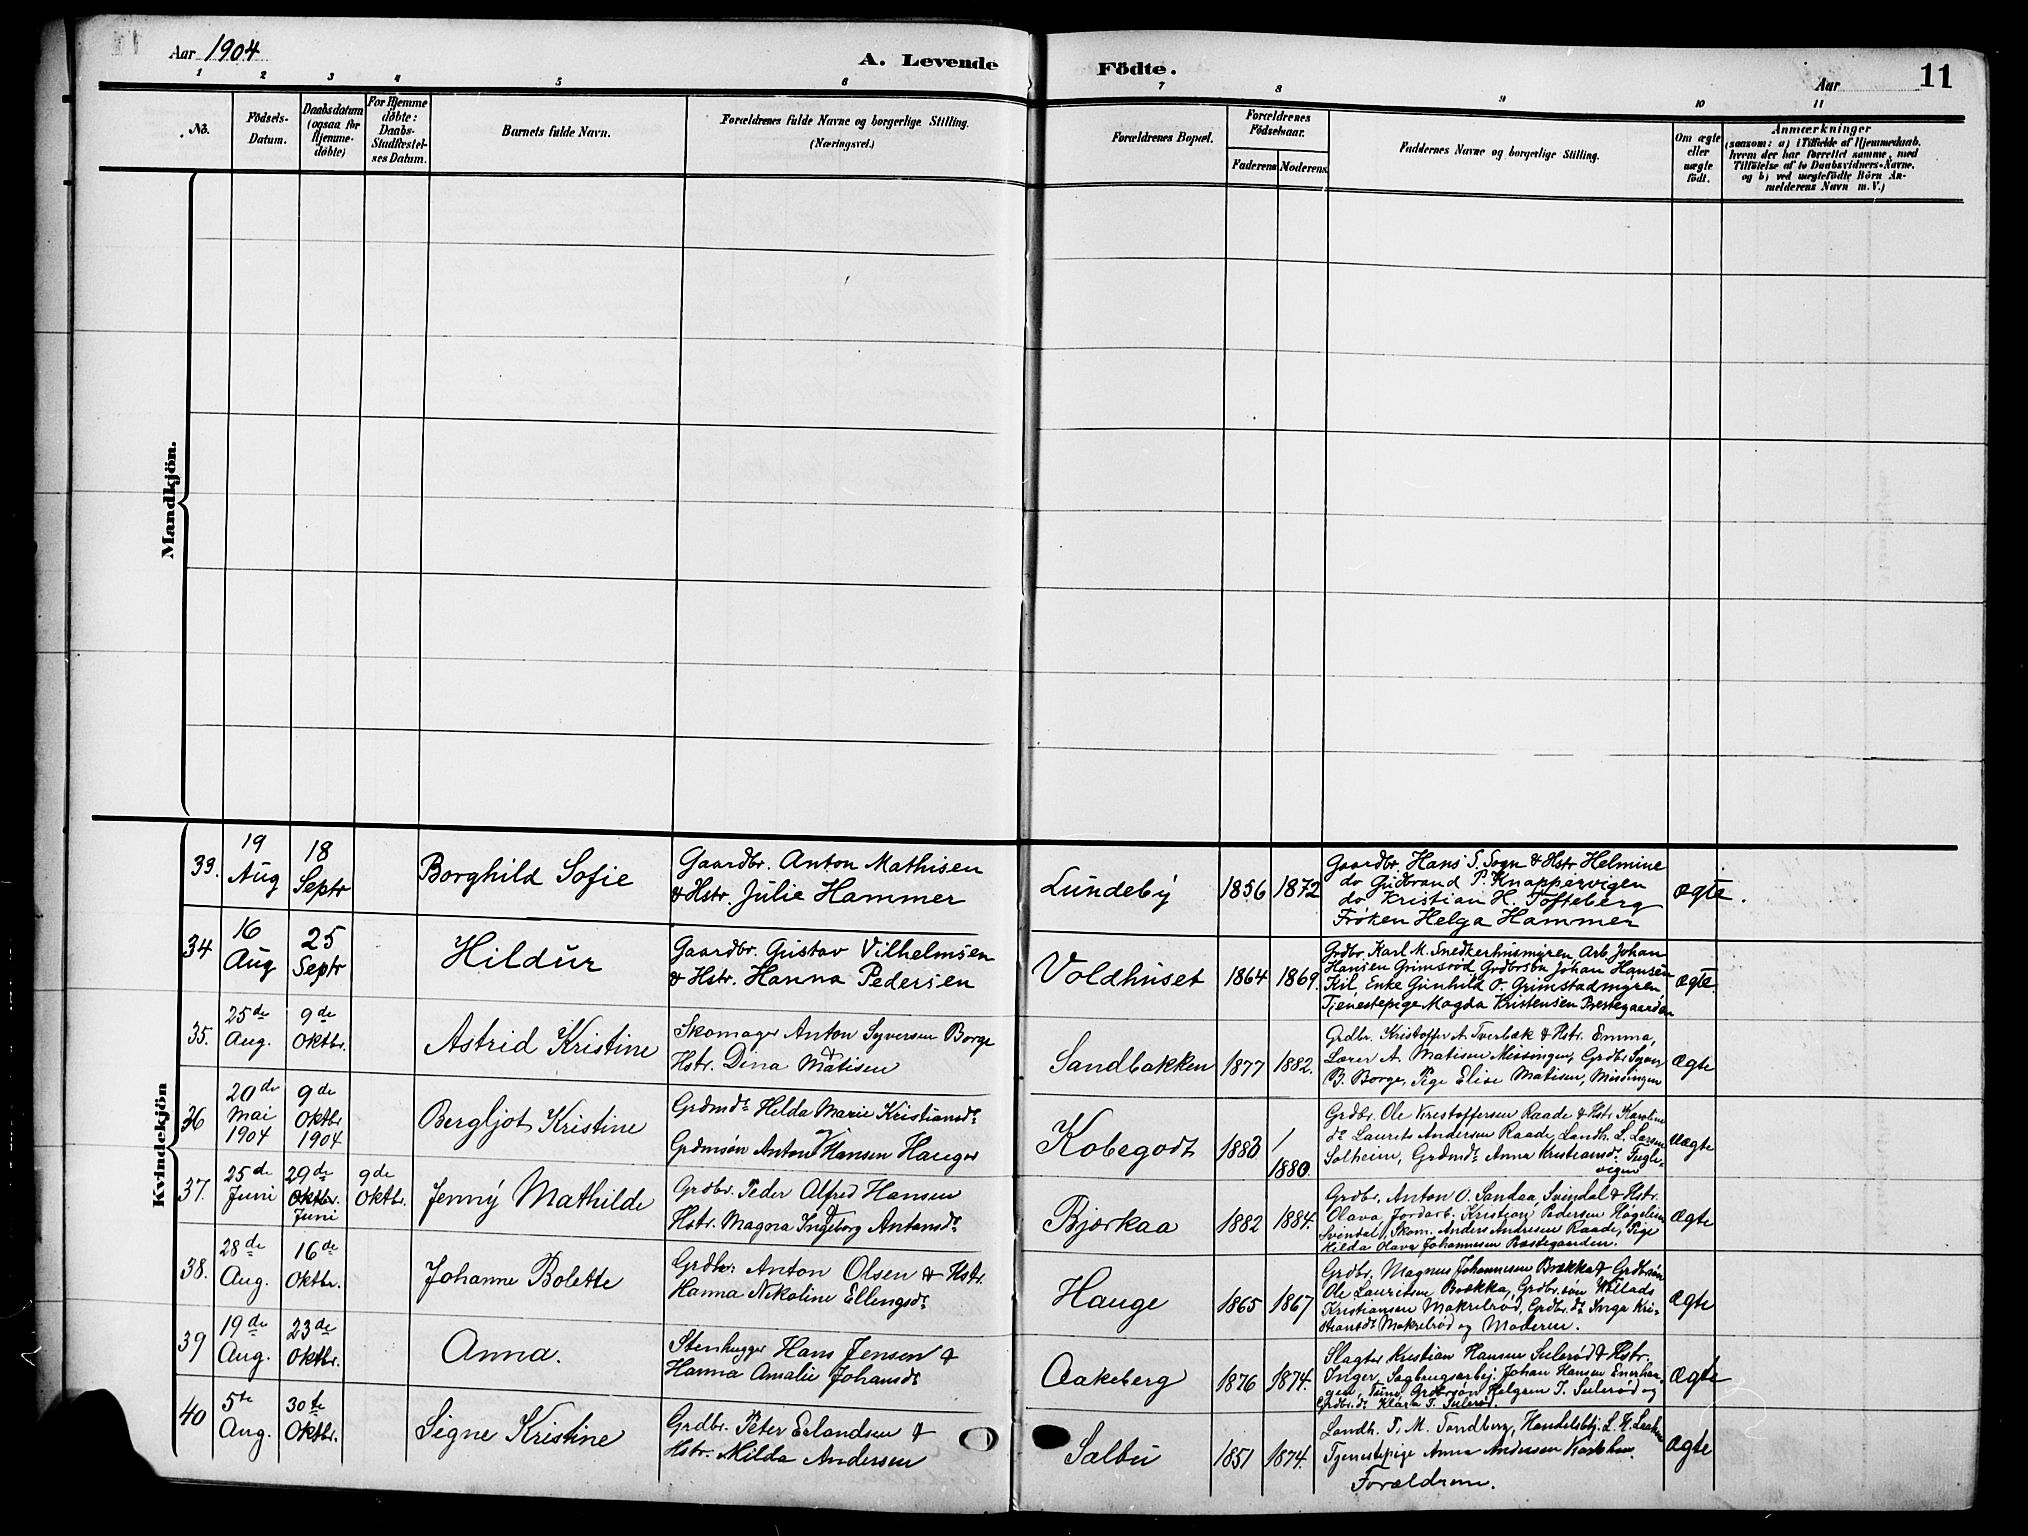 Aar 1904
A. Levende Födte.
Aar
11
1 2 3 4 5 6 7 8 9 10 11
No.
Födsels-
Datum.
Daabsdatum
(ogsaa for
Hjemme-
döbte)
For Hjemme
döbte:
Daabs-
Stadfæstel-
ses Datum.
Barnets fulde Navn.
Forældrenes fulde Navne og borgerlige Stilling.
(Næringsvei.)
Forældrenes Bopæl.
Forældrenes
Födselsaar.
Faderens Moderens
Faddernes Navne og borgerlige Stilling.
Om ægte
eller
uægte
födt.
Anmærkninger
(saasom: a) i Tilfælde af Hjemmedaab.
hvem der har forrettet samme, med
Tilföielse af to Daabsvidners-Navne.
og b) ved uægtefödte Börn An-
melderens Navn m. V.)
Mandkjön.
Kvindekjön
33.
19
Aug
18
Septr
Borghild Sofie
Gaardbr. Anton Mathisen
& Hstr. Julie Hammer
Lundeby
1856
1872
Gaardbr. Hans S. Sogn & Hstr. Helmine
do Gudbrand P. Knappervigen
do Kristian H. Tofteberg
Frøken Helga Hammer
ægte.
34
16
Aug
25
Septr
Hildur
Gaardbr. Gustav Vilhelmsen
& Hstr. Hanna Pedersen
Voldhuset
1864
1869.
Grdbr. Karl M. Snedkerhusmyren Arb. Johan
Hansen Grimsrød Grdbrsøn Johan Hansen
Kil Enke Gunhild O. Grimstadmyren
Tjenestepige Magda Kristensen Prestegaarden
ægte.
35.
25de
Aug.
9de
Oktbr.
Astrid Kristine
Skomager Anton Syversen Borge
&
Hstr. Dina Matisen
Sandbakken
1877
1882.
Grdbr. Kristoffer A. Tverbæk & Hstr. Emma,
Lærer A. Matisen Missingen, Grdbr. Syver
B. Borge, Pige Elise Matisen, Missingen
Ægte
36
20de
Mai
1904
9de
Oktbr
1904
Bergljot Kristine
Grdmdt. Helda Marie Kristiansdt.
Grdmsøn Anton Hansen Hauger
Kobegodt
1883
/
1880.
Grdbr. Ole Kristoffersen Raade & Hstr. Karoline
dt. Laurits Andersen Raade, Landh. L. Larsen
Solheim, Grdmdt. Anna Kristiansdt. Fugle-
vigen
uægte
37.
25de
Juni
29de
Oktbr.
Juni
9de
Oktbr.
Jenny Mathilde
Grdbr. Peder Alfred Hansen
&
Hstr. Magna Ingeborg Antonsdt.
Bjørkaa
1882
1884.
Grdbr. Anton O. Sandaa, Svindal & Hstr.
Olava, Jordarb. Kristian Pedersen Høgeliem
Svendal, Skom. Anders Andresen Raade, Pige
Hilda Olava Johannesen Præstegaarden.
Ægte
38.
28de
Aug.
16de
Oktbr.
Johanne Bolette
Grdbr. Anton Olsen & Hstr.
Hanna Nikoline Ellingsdt.
Hauge
1865
1867
Grdbr. Magnus Johannesen Brække & Grdbrsøn
Ole Lauritsen Brække, Grdbr.søn
Kristiansen Makrelrød, Grdbr.dt. Inga Kri-
stiansdt. Makrelrød og Moderen.
Ægte
39
19de
Aug.
23de
Oktbr.
Anna.
Stenhugger Hans Jensen &
Hanna Amalie Johansdt.
Aakeberg
1876
1874.
Slagter Kristian Hansen Sulerød & Hstr.
Inger, Sagbrugsarbej. Johan Hansen
Grdbrsøn Helgren T. Sulerød og
Grdbr.dt. Klara T. Sulerød.
Ægte
40
5te
Aug.
30te
Oktbr.
Signe Kristine
Grdbr. Peter Erlandsen &
Hstr. Milda Andersen
Saltbu
1851
1874.
Landh. T. M. Tandberg, Handelsbtj. L. K.
Tjenestepige Anna Andersen
Forældrene.
Ægte